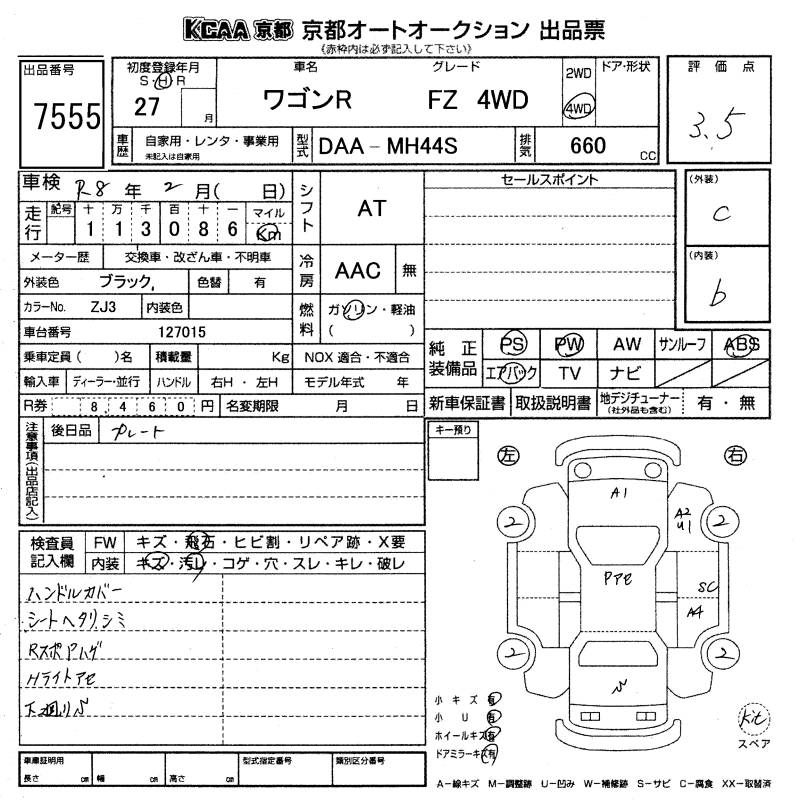 KCAA 京都 京都オートオークション 出品票
《赤枠内は必ず記入して下さい》
出品番号
7555
初度登録年月
S・H・R
27 月
車名 グレード
ワゴンR FZ 4WD
2WD
4WD
ドア・形状
評価点
3.5
車歴 自家用・レンタ・事業用
未記入は自家用
型式 DAA-MH44S
排気 660 CC
車検 R8年 2月( 日)
走行 記号 十 万 千 百 十 一 マイル
1 1 3 0 8 6 Km
メーター歴 交換車・改ざん車・不明車
外装色 ブラック 色替 有
カラーNo. ZJ3 内装色
車台番号 127015
乗車定員( )名 積載量 Kg
輸入車 ディーラー・並行 ハンドル 右H・左H
R券 8,460円 名変期限 月 日
シフト AT
冷房 AAC 無
燃料 ガソリン・軽油
( )
NOX 適合・不適合
モデル年式 年
セールスポイント
(外装)
C
(内装)
b
純正装備品 PS PW AW サンルーフ ABS
エアバック TV ナビ
新車保証書 取扱説明書 地デジチューナー
(社外品も含む)
有・無
注意事項(出品店記入)
後日品 プレート
キー預り
左 右
検査員記入欄
FW キズ・飛石・ヒビ割・リペア跡・X要
内装 キズ・汚レ・コゲ・穴・スレ・キレ・破レ
ハンドルカバー
シートヘタリ、シミ
Rスポアハゲ
Hライトアセ
下廻りS
A1
A2
U1
2 2
Pアセ
SC
A4
2 2
S
小キズ 有
小U 有
ホイールキズ 有
ドアミラーキズ 有
kit
スペア
車庫証明用
長さ cm 幅 cm 高さ cm
型式指定番号
類別区分番号
A-線キズ M-調整跡 U-凹み W-補修跡 S-サビ C-腐食 XX-取替済